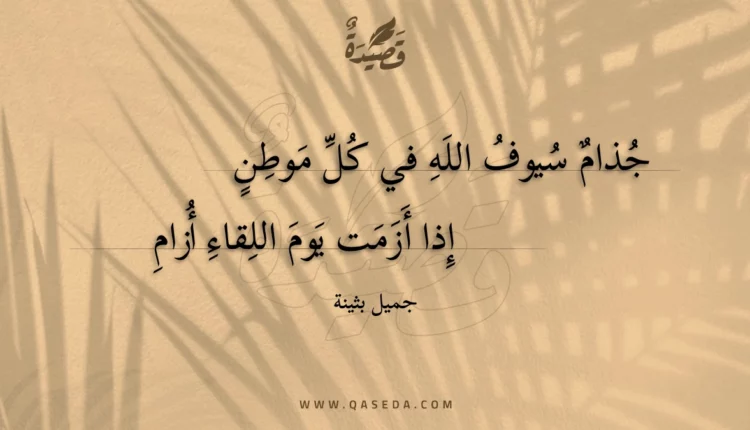 قَصِيدَةٌ
جُذامٌ سُيوفُ اللَهِ في كُلِّ مَوطِنٍ
إِذا أَزَمَت يَومَ اللِقاءِ أُزامِ
جميل بثينة
WWW.QASEDA.COM